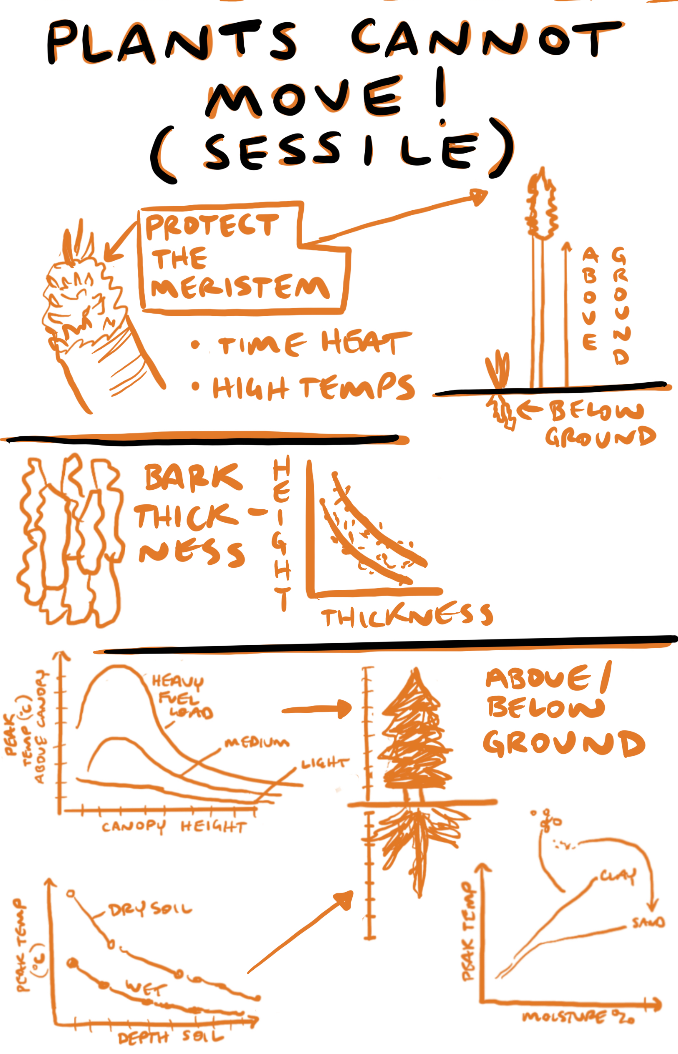 PLANTS CANNOT
MOVE!
(SESSILE)
PROTECT
THE
MERISTEM
• TIME HEAT
• HIGH TEMPS
ABOVE
GROUND
BELOW
GROUND
BARK
THICK-
NESS
HEIGHT
THICKNESS
PEAK
TEMP (°C)
ABOVE CANOPY
HEAVY
FUEL
LOAD
MEDIUM
LIGHT
CANOPY HEIGHT
ABOVE/
BELOW
GROUND
PEAK TEMP
(°C)
DRY SOIL
WET
DEPTH SOIL
PEAK TEMP
CLAY
SAND
MOISTURE %